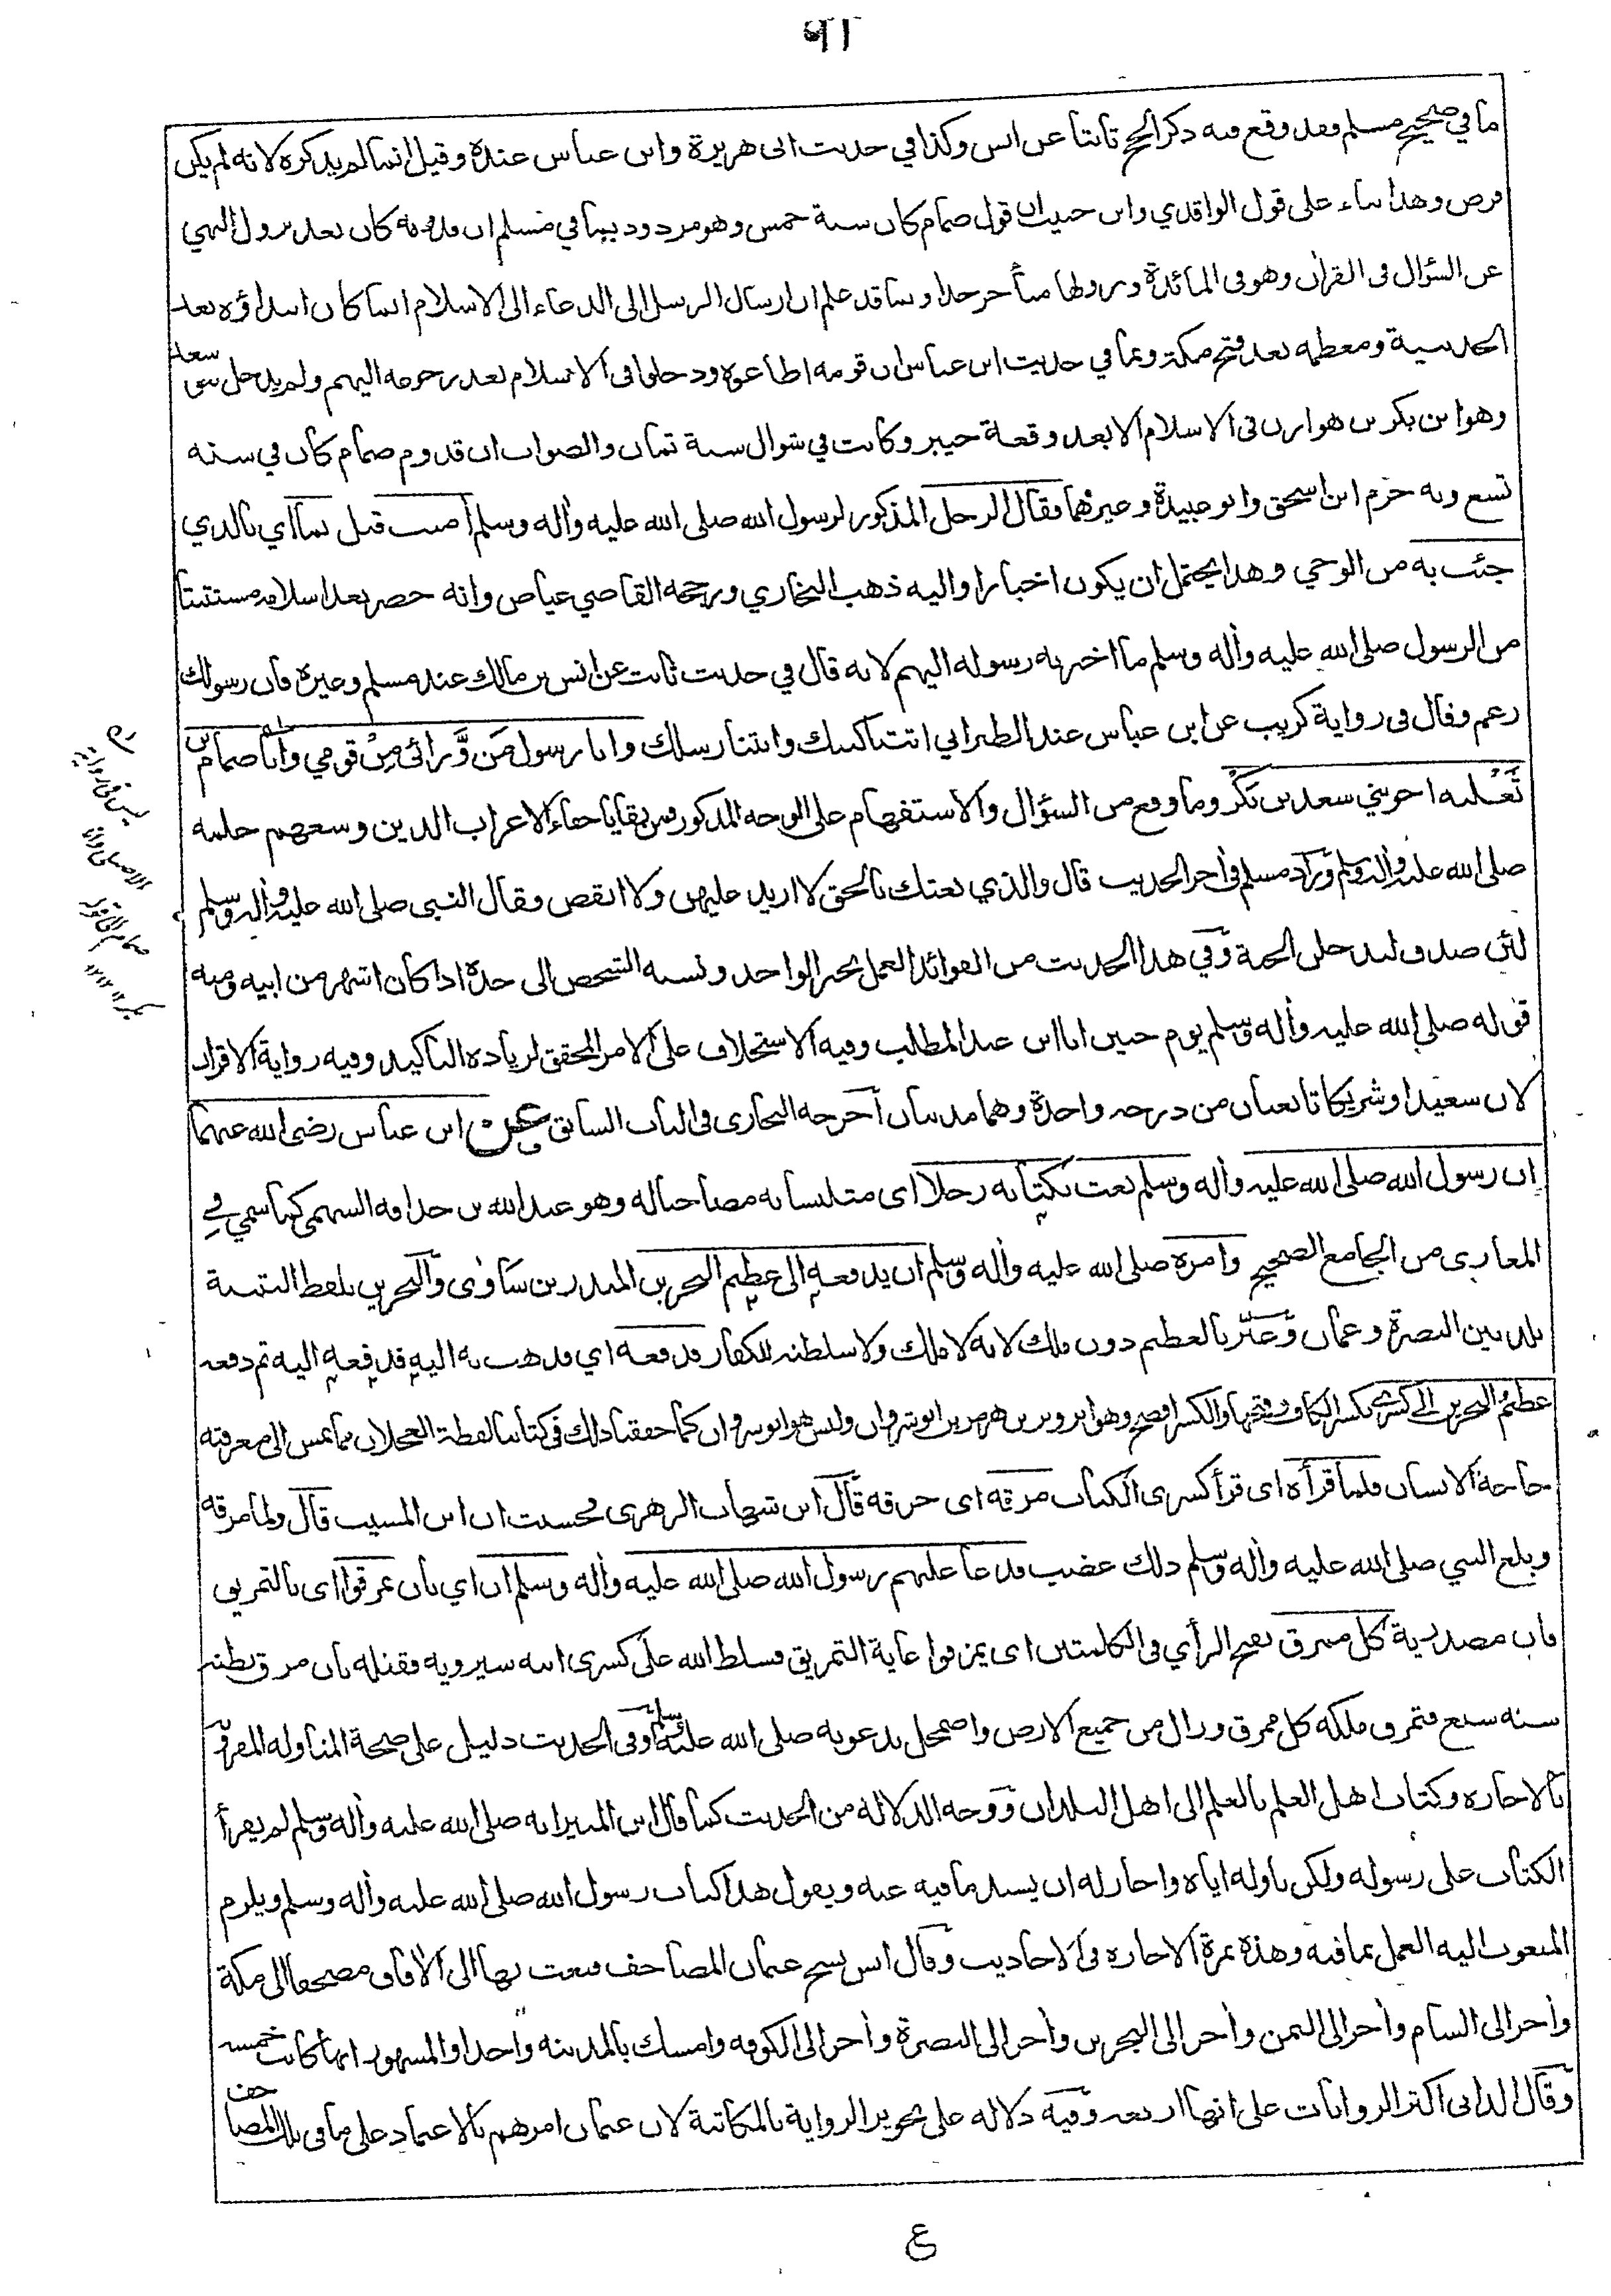 ٩١
ما في صحيح مسلم فقد وقع فيه ذكر الحج ثابتا عن انس وكذا في حديث ابى هريرة وابن عباس عنده وقيل انما لم يذكره لانه لم يكن
فرض وهذا بناء على قول الواقدي وابن حبيب ان قول ضمام كان سنة خمس وهو مردود بما في مسلم ان قدومه كان بعد نزول النهي
عن السؤال في القرأن وهو في المائدة ونزولها متأخر جدا وبما قد علم ان ارسال الرسل الى الدعاء الى الاسلام انما كان ابتداؤه بعد
الحديبية ومعظمه بعد فتح مكة وبما في حديث ابن عباس ان قومه اطاعوه ودخلوا في الاسلام بعد رجوعه اليهم ولم يدخل بنى سعد
وهو ابن بكر بن هوازن في الاسلام الا بعد وقعة حيبر وكانت في شوال سنة ثمان والصواب ان قدوم ضمام كان في سنة
تسع وبه جزم ابن اسحق وابو عبيدة وغيرهما فقال الرجل المذكور لرسول الله صلى الله عليه وأله وسلم أمنت قبل بما اي بالذي
جئت به من الوحي وهذا يحتمل ان يكون اخبارا واليه ذهب البخاري ورجحه القاضي عياض وانه حضر بعد اسلامه مستثبتا
من الرسول صلى الله عليه وأله وسلم ما اخبر به رسوله اليهم لانه قال في حديث ثابت عن انس بن مالك عند مسلم وغيره فان رسولك
زعم وقال في رواية كريب عن ابن عباس عند الطبراني اتتنا كتبك واتتنا رسلك وانا رسول مَن وَّرائى مِنْ قومي وانا ضمام بن
ثَعْلبه اخو بني سعد بن بَكْر وما وقع من السؤال والاستفهام على الوجه المذكور فمن بقايا جفاء الاعراب الذين وسعهم حلمه
صلى الله عليه وأله وسلم وزاد مسلم في أخر الحديث قال والذي بعثك بالحق لا ازيد عليهن ولا انقص فقال النبى صلى الله عليه وأله وسلم
لئن صدق ليدخلن الجنة وفي هذا الحديث من الفوائد العمل بخبر الواحد ونسبه الشخص الى جده اذا كان اشهر من ابيه ومنه
قوله صلى الله عليه وأله وسلم يوم حنين انا ابن عبد المطلب وفيه الاستحلاف على الامر المحقق لزيادة التاكيد وفيه رواية الاقران
لان سعيدا وشريكا تابعيان من درجه واحدة وهما مدنيان أخرجه البخارى في الباب السابق عن ابن عباس رضى الله عنهما
ان رسول الله صلى الله عليه وأله وسلم بعث بكتابه رجلا اى متلبسا به مصاحبا له وهو عبد الله بن حذافه السهمى كما سمي في
المغازى من الجامع الصحيح وامره صلى الله عليه وأله وسلم ان يدفعه الى عظيم البحرين المنذر بن ساوى والبحرين بلفظ التثنية
بلد بين البصرة وعمان وعبّر بالعظيم دون ملك لانه لا ملك ولا سلطنه للكفار فدفعه اي فذهب به اليه فدفعه اليه ثم دفعه
عظيم البحرين الى كسرى بكسر الكاف وفتحها والكسر افصح وهو ابرويز بن هرمز بن انوشروان وليس هو انوشروان كما حققنا ذلك في كتابنا لقطة العجلان مما تمس الى معرفته
حاجة الانسان فلما قرأه اى قرأ كسرى الكتاب مزقه اى خرقه قال ابن شهاب الزهرى فحسبت ان ابن المسيب قال ولما مزقه
وبلغ النبي صلى الله عليه وأله وسلم ذلك غضب فدعا عليهم رسول الله صلى الله عليه وأله وسلم ان اي بان يمزقوا اى بالتمزيق
فان مصدرية كل ممزق بفتح الزأي في الكلمتين اى يمزقوا غاية التمزيق فسلط الله على كسرى ابنه سيرويه فقتله بان مزق بطنه
سنه سبع فتمزق ملكه كل ممزق وزال من جميع الارض واضمحل بدعوته صلى الله عليه وسلم وفي الحديث دليل على صحة المناوله المقرونة
بالاجازه وكتاب اهل العلم بالعلم الى اهل البلدان ووجه الدلاله من الحديث كما قال ابن المنير انه صلى الله عليه وأله وسلم لم يقرأ
الكتاب على رسوله ولكن ناوله اياه واجاز له ان يسند ما فيه عنه ويقول هذا كتاب رسول الله صلى الله عليه وأله وسلم ويلزم
المبعوث اليه العمل بما فيه وهذه ثمرة الاجازه في الاحاديث وقال انس نسخ عثمان المصاحف فبعث بها الى الأفاق مصحفا الى مكة
وأخر الى الشام وأخر الى اليمن وأخر الى البحرين وأخر الى البصرة وأخر الى الكوفه وامسك بالمدينه واحدا والمشهور انها كانت خمسه
وقال الدانى اكثر الروايات على انها اربعه وفيه دلاله على تجويز الرواية بالمكاتبة لان عثمان امرهم بالاعتماد على ما في تلك المصاحف
ليس في رواية
الاصلى وانا
ضمام الى قوله
بكر ١٢
ع